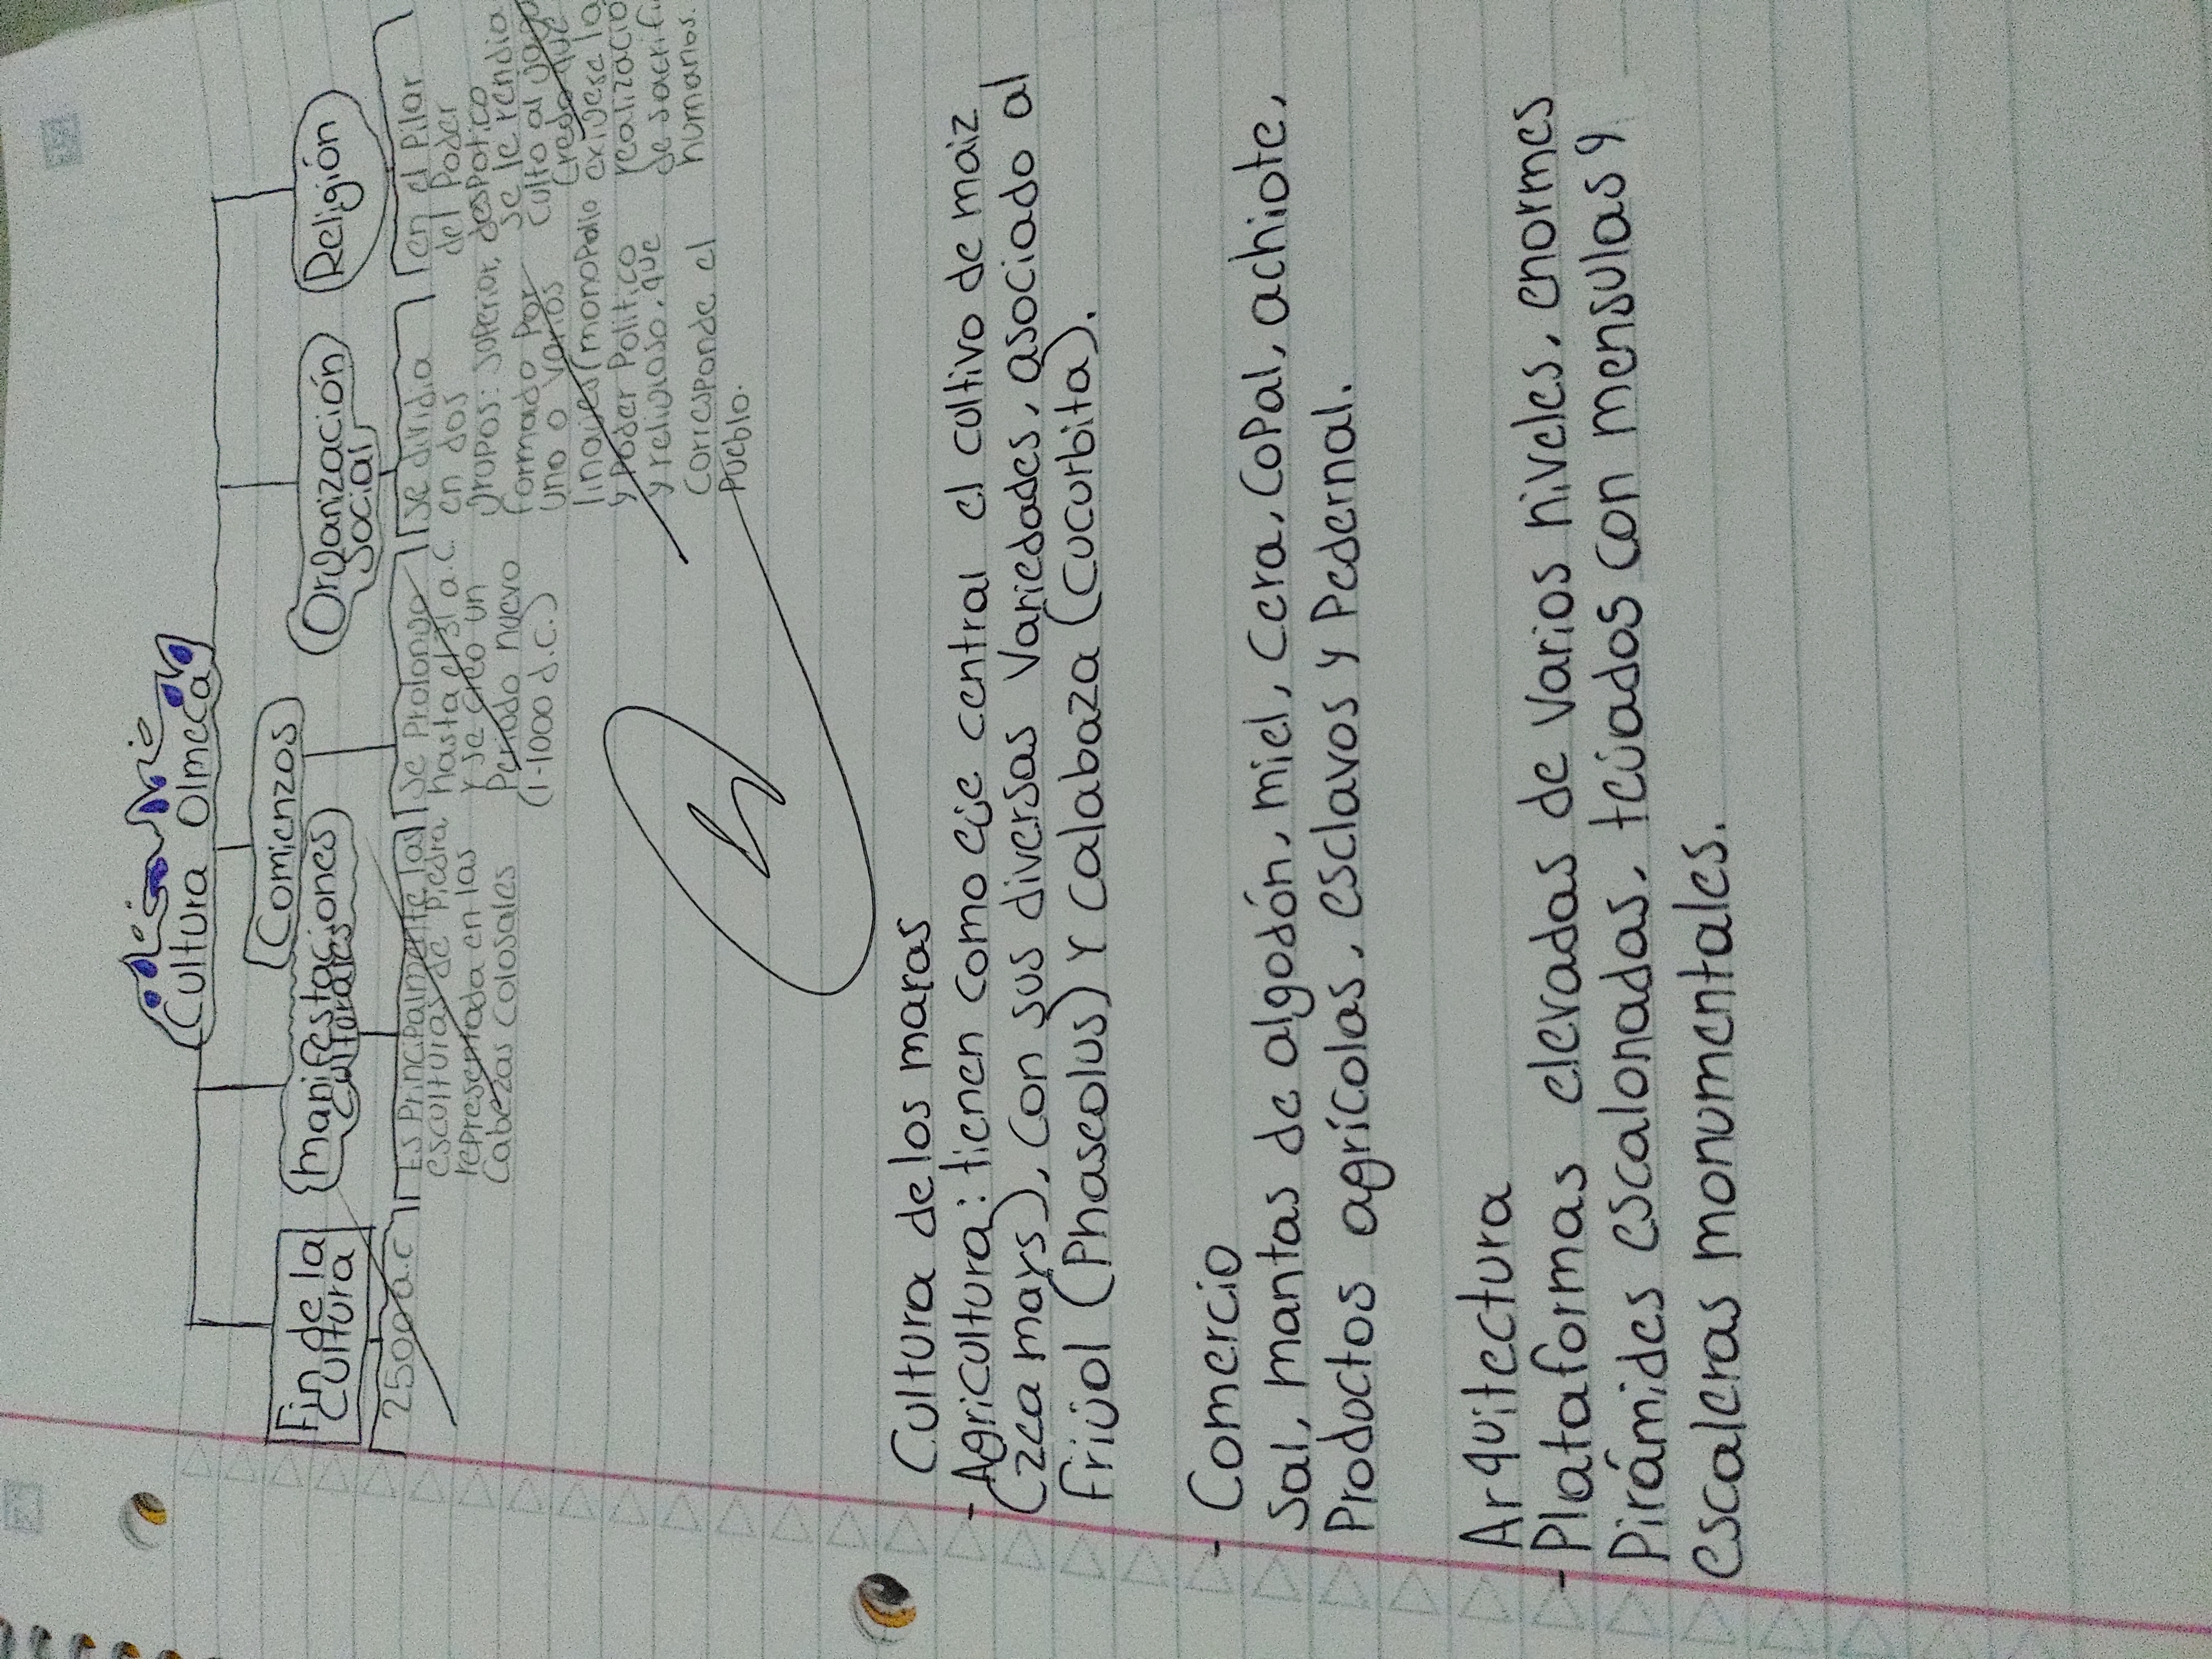 Cultura Olmeca
Comienzos
Fin de la
Cultura
Manifestaciones
Culturales
Organización
Social
Religión
2500 a.c
Es Principalmente las
esculturas de Piedra
representada en las
Cabezas Colosales
Se Prolongo
hasta el 31 a.C.
Y se creo un
Periodo nuevo
(1-1000 d.C.)
Se dividia
en dos
grupos: superior,
formado por
uno o varios
linajes (monopolio
y poder Politico
y religioso, que
Corresponde el
Pueblo.
en el Pilar
del Poder
despotico
se le rendia
culto al
Credo que
exigese la
realizacio
de sacrifi
humanos.
Cultura de los maras
- Agricultura: tienen como eje central el cultivo de maiz
(zea mays), Con sus diversas Variedades, asociado al
frijol (Phaseolus) Y Calabaza (Cucurbita).
- Comercio
Sal, mantas de algodón, miel, Cera, CoPal, achiote,
Productos agrícolas, esclavos y Pedernal.
Arquitectura
- Plataformas elevadas de Varios niveles, enormes
Pirámides escalonadas, tejados Con mensulas y
escaleras monumentales.